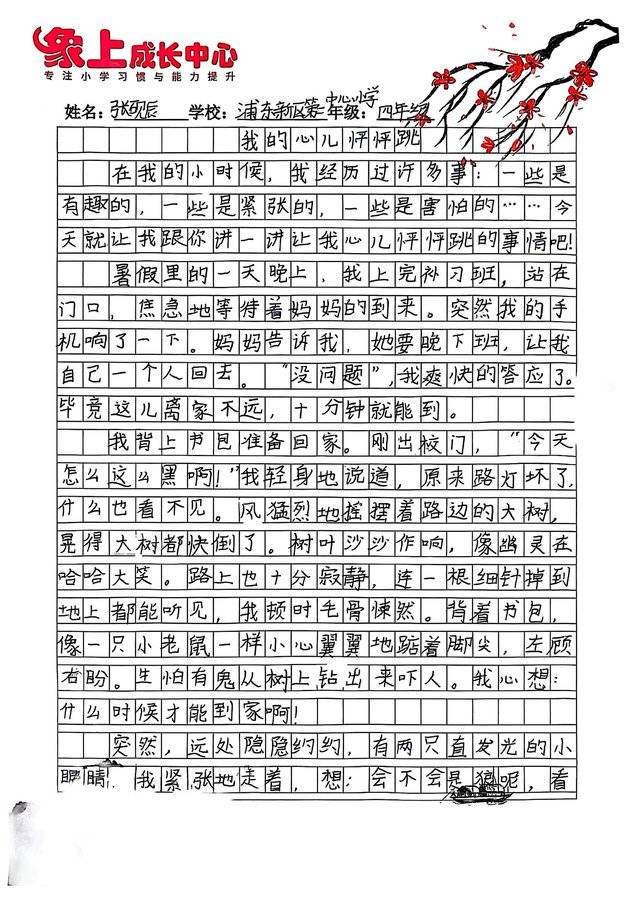 象上成长中心
专注小学习惯与能力提升
姓名: 张 辰 学校: 浦东新区第二中心小学 年级: 四年级
我的心儿怦怦跳
在我的小时候，我经历过许多事：一些是
有趣的，一些是紧张的，一些是害怕的……今
天就让我跟你讲一讲让我心儿怦怦跳的事情吧！
暑假里的一天晚上，我上完补习班，站在
门口，焦急地等待着妈妈的到来。突然我的手
机响了一下。妈妈告诉我，她要晚下班，让我
自己一个人回去。“没问题”，我爽快的答应了。
毕竟这儿离家不远，十分钟就能到。
我背上书包准备回家。刚出校门，“今天
怎么这么黑啊！”我轻身地说道，原来路灯坏了，
什么也看不见。风猛烈地摇摆着路边的大树，
晃得大树都快倒了。树叶沙沙作响，像幽灵在
哈哈大笑。路上也十分寂静，连一根细针掉到
地上都能听见，我顿时毛骨悚然。背着书包，
像一只小老鼠一样小心翼翼地踮着脚尖，左顾
右盼。生怕有鬼从树上钻出来吓人。我心想：
什么时候才能到家啊！
突然，远处隐隐约约，有两只直发光的小
眼睛！我紧张地走着，想：会不会是狼呢，看